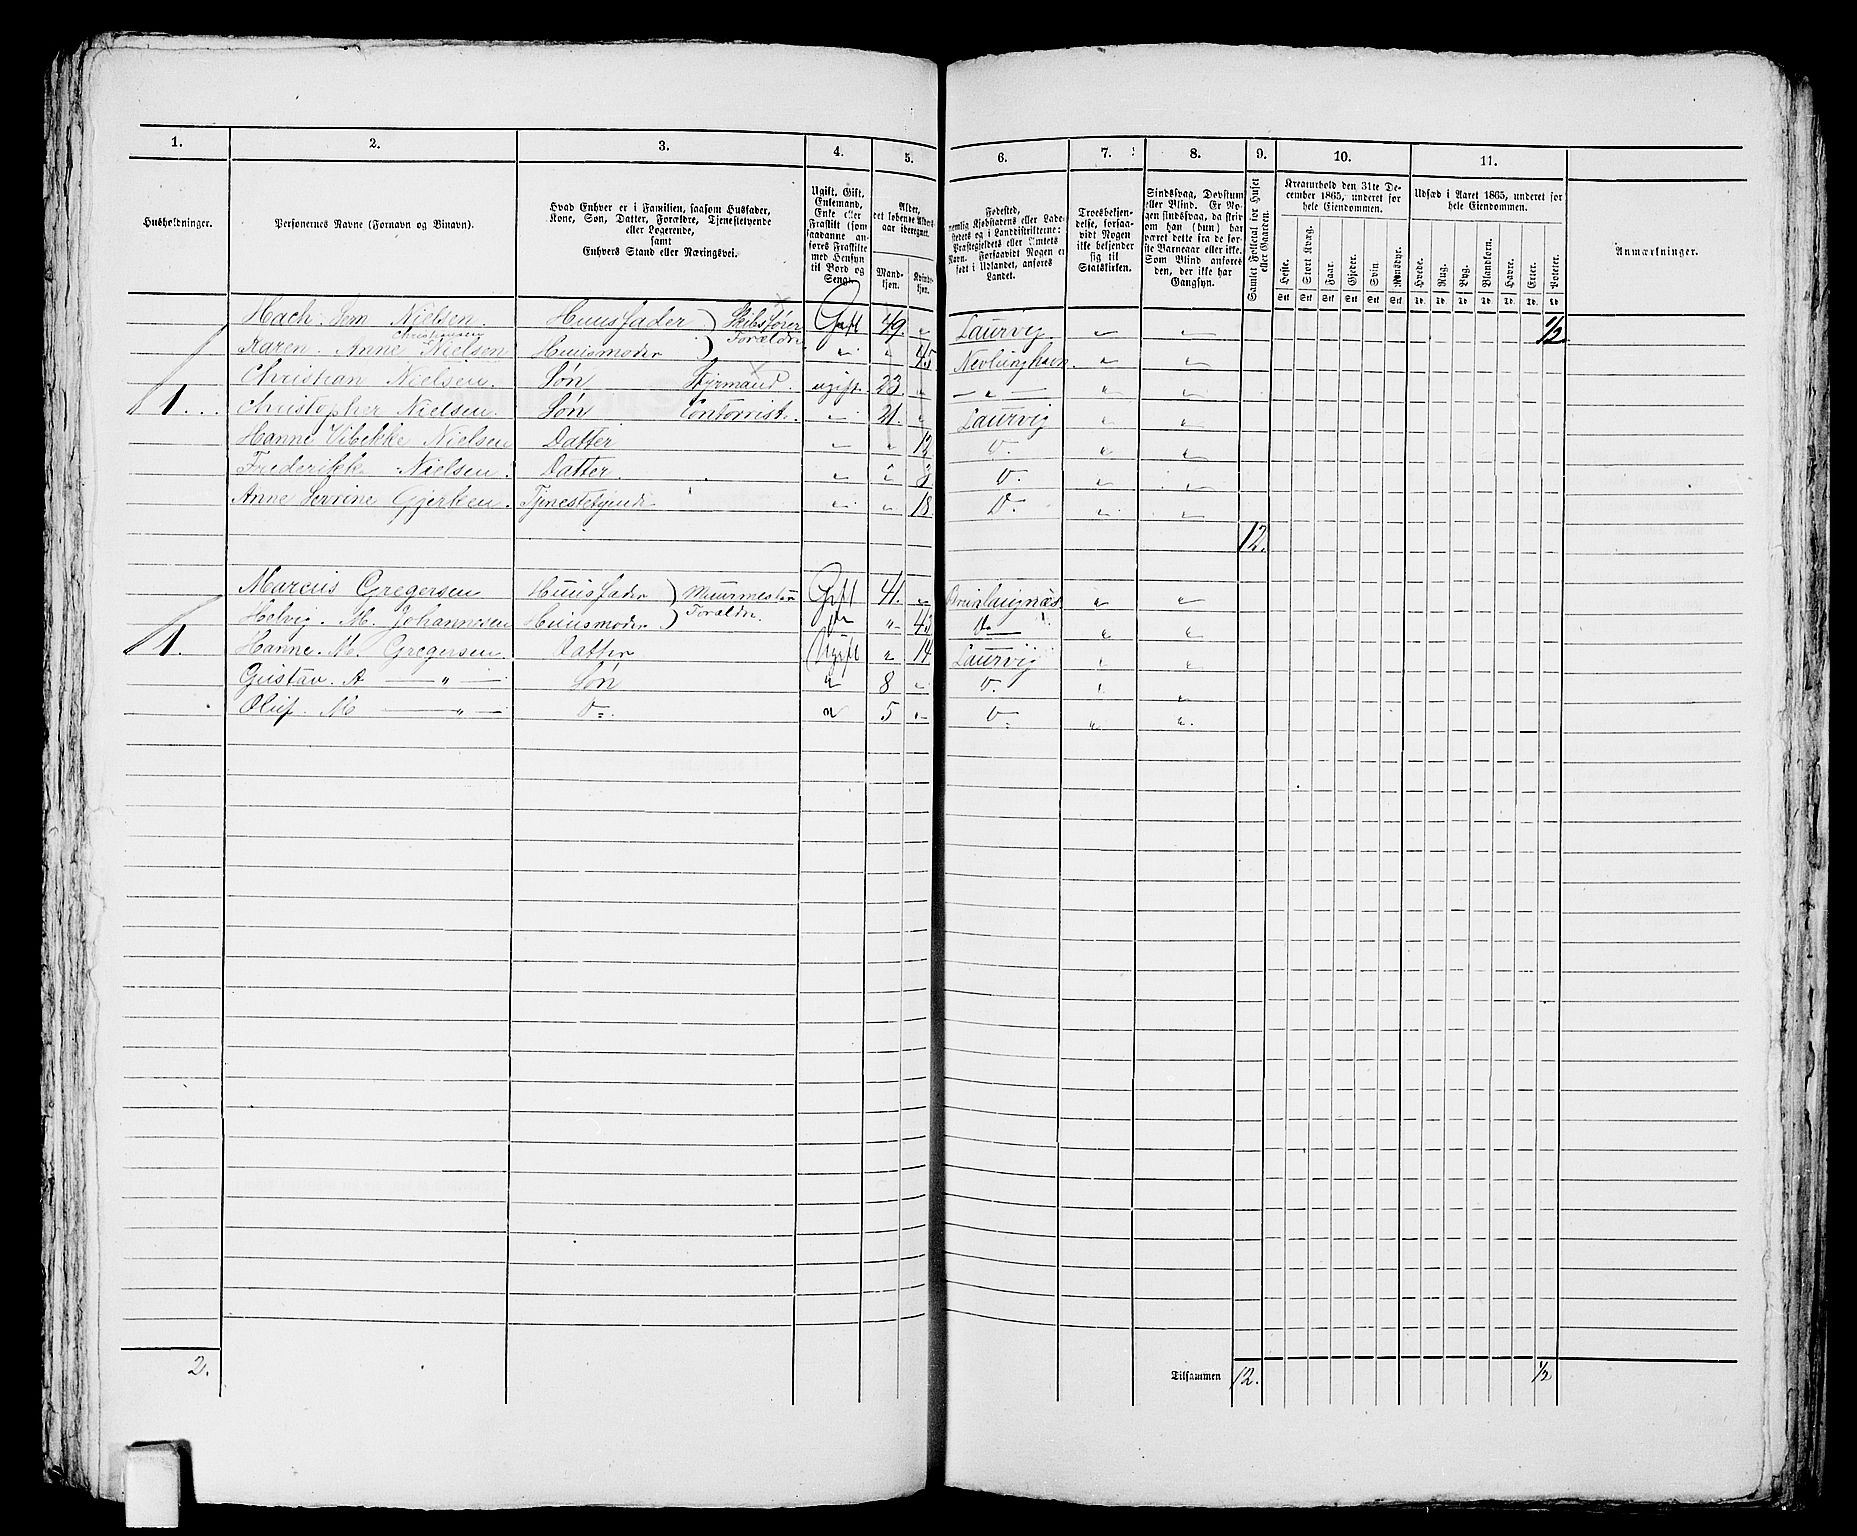 1. 2. 3. 4. 5. 6. 7. 8. 9. 10. 11.
Husholdninger.
Personernes Navne (Fornavn og Binavn).
Hvad Enhver er i Familien, saasom Husfader,
Kone, Søn, Datter, Forældre, Tjenestetyende
eller Logerende,
samt
Enhvers Stand eller Næringsvei.
Ugift, Gift,
Enkemand,
Enke eller
Fraskilt (som
saadanne an-
føres Fraskilte
med Hensyn
til Bord og
Seng).
Alder,
det løbende Alders-
aar iberegnet.
Mand-
kjøn.
Kvinde-
kjøn.
Fødested,
nemlig Kjøbstadens eller Lade-
stedets og i Landdistrikterne:
Præstegjeldets eller Amtets
Navn. Forsaavidt Nogen er
født i Udlandet, anføres
Landet.
Troesbekjen-
delse, forsaa-
vidt Nogen
ikke bekjender
sig til
Statskirken.
Sindssvag, Døvstum
eller Blind. Er No-
gen sindssvag, da skriv
om han (hun) har
været dette fra de før-
ste Barneaar eller ikke.
Som Blind anføres
den, der ikke har
Gangsyn.
Samlet Folketal for Huset
eller Gaarden.
Kreaturhold den 31te De-
cember 1865, underet for
hele Eiendommen.
Heste. Stort Kvæg. Faar. Gjeder. Svin. Rensdyr.
Stk Stk Stk Stk Stk Stk
Udsæd i Aaret 1865, underet for
hele Eiendommen.
Hvede. Rug. Byg. Blandkorn. Havre. Erter. Poteter.
Td. Td. Td. Td. Td. Td. Td.
Anmærkninger.
Nielsen. Huusfader Skibsfører Gift 49. " Laurvig " " 1/2
Karen. Anne Nielsen Huusmoder Forældre " " 45 Nevlunghavn " "
Christian Nielsen. Søn Styrmand. ugift. 23. " — " — " "
1. Christopher Nielsen. Søn Contorrist. " 21. " Laurvig " "
Hanne Vibekke Nielsen Datter " " 12 D. " "
Frederikke Nielsen. Datter. " " 3 D. " "
Anne Serrine Gjerken. Tjenestetyende " " 18 D. " "
12.
Marcus Gregersen Huusfader Muurmester Gift 41. " Brunlaugnæs " "
Helvig. M. Johannesen Huusmoder Forældre. " 43 D— " "
1. Hanne. M. Gregersen. Datter Ugift " 14 Laurvig " "
Gustav. A — " — Søn " 8 " D. " "
Oluf. M — " — D= " 5 " D= " "
2.
Tilsammen 12. 1/2